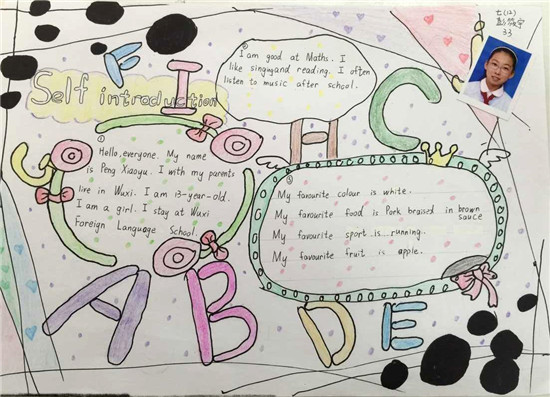 七(12)
彭筱宇
33
F
I
H
C
G
Self introduction
I am good at Maths. I
like singing and reading. I often
listen to music after school.
Hello, everyone. My name
is Peng Xiaoyu. I with my parents
live in Wuxi. I am 13-year-old.
I am a girl. I stay at Wuxi
Foreign Language School.
My favourite colour is white.
My favourite food is Pork braised in brown
sauce
My favourite sport is running.
My favourite fruit is apple.
A
B
D
E